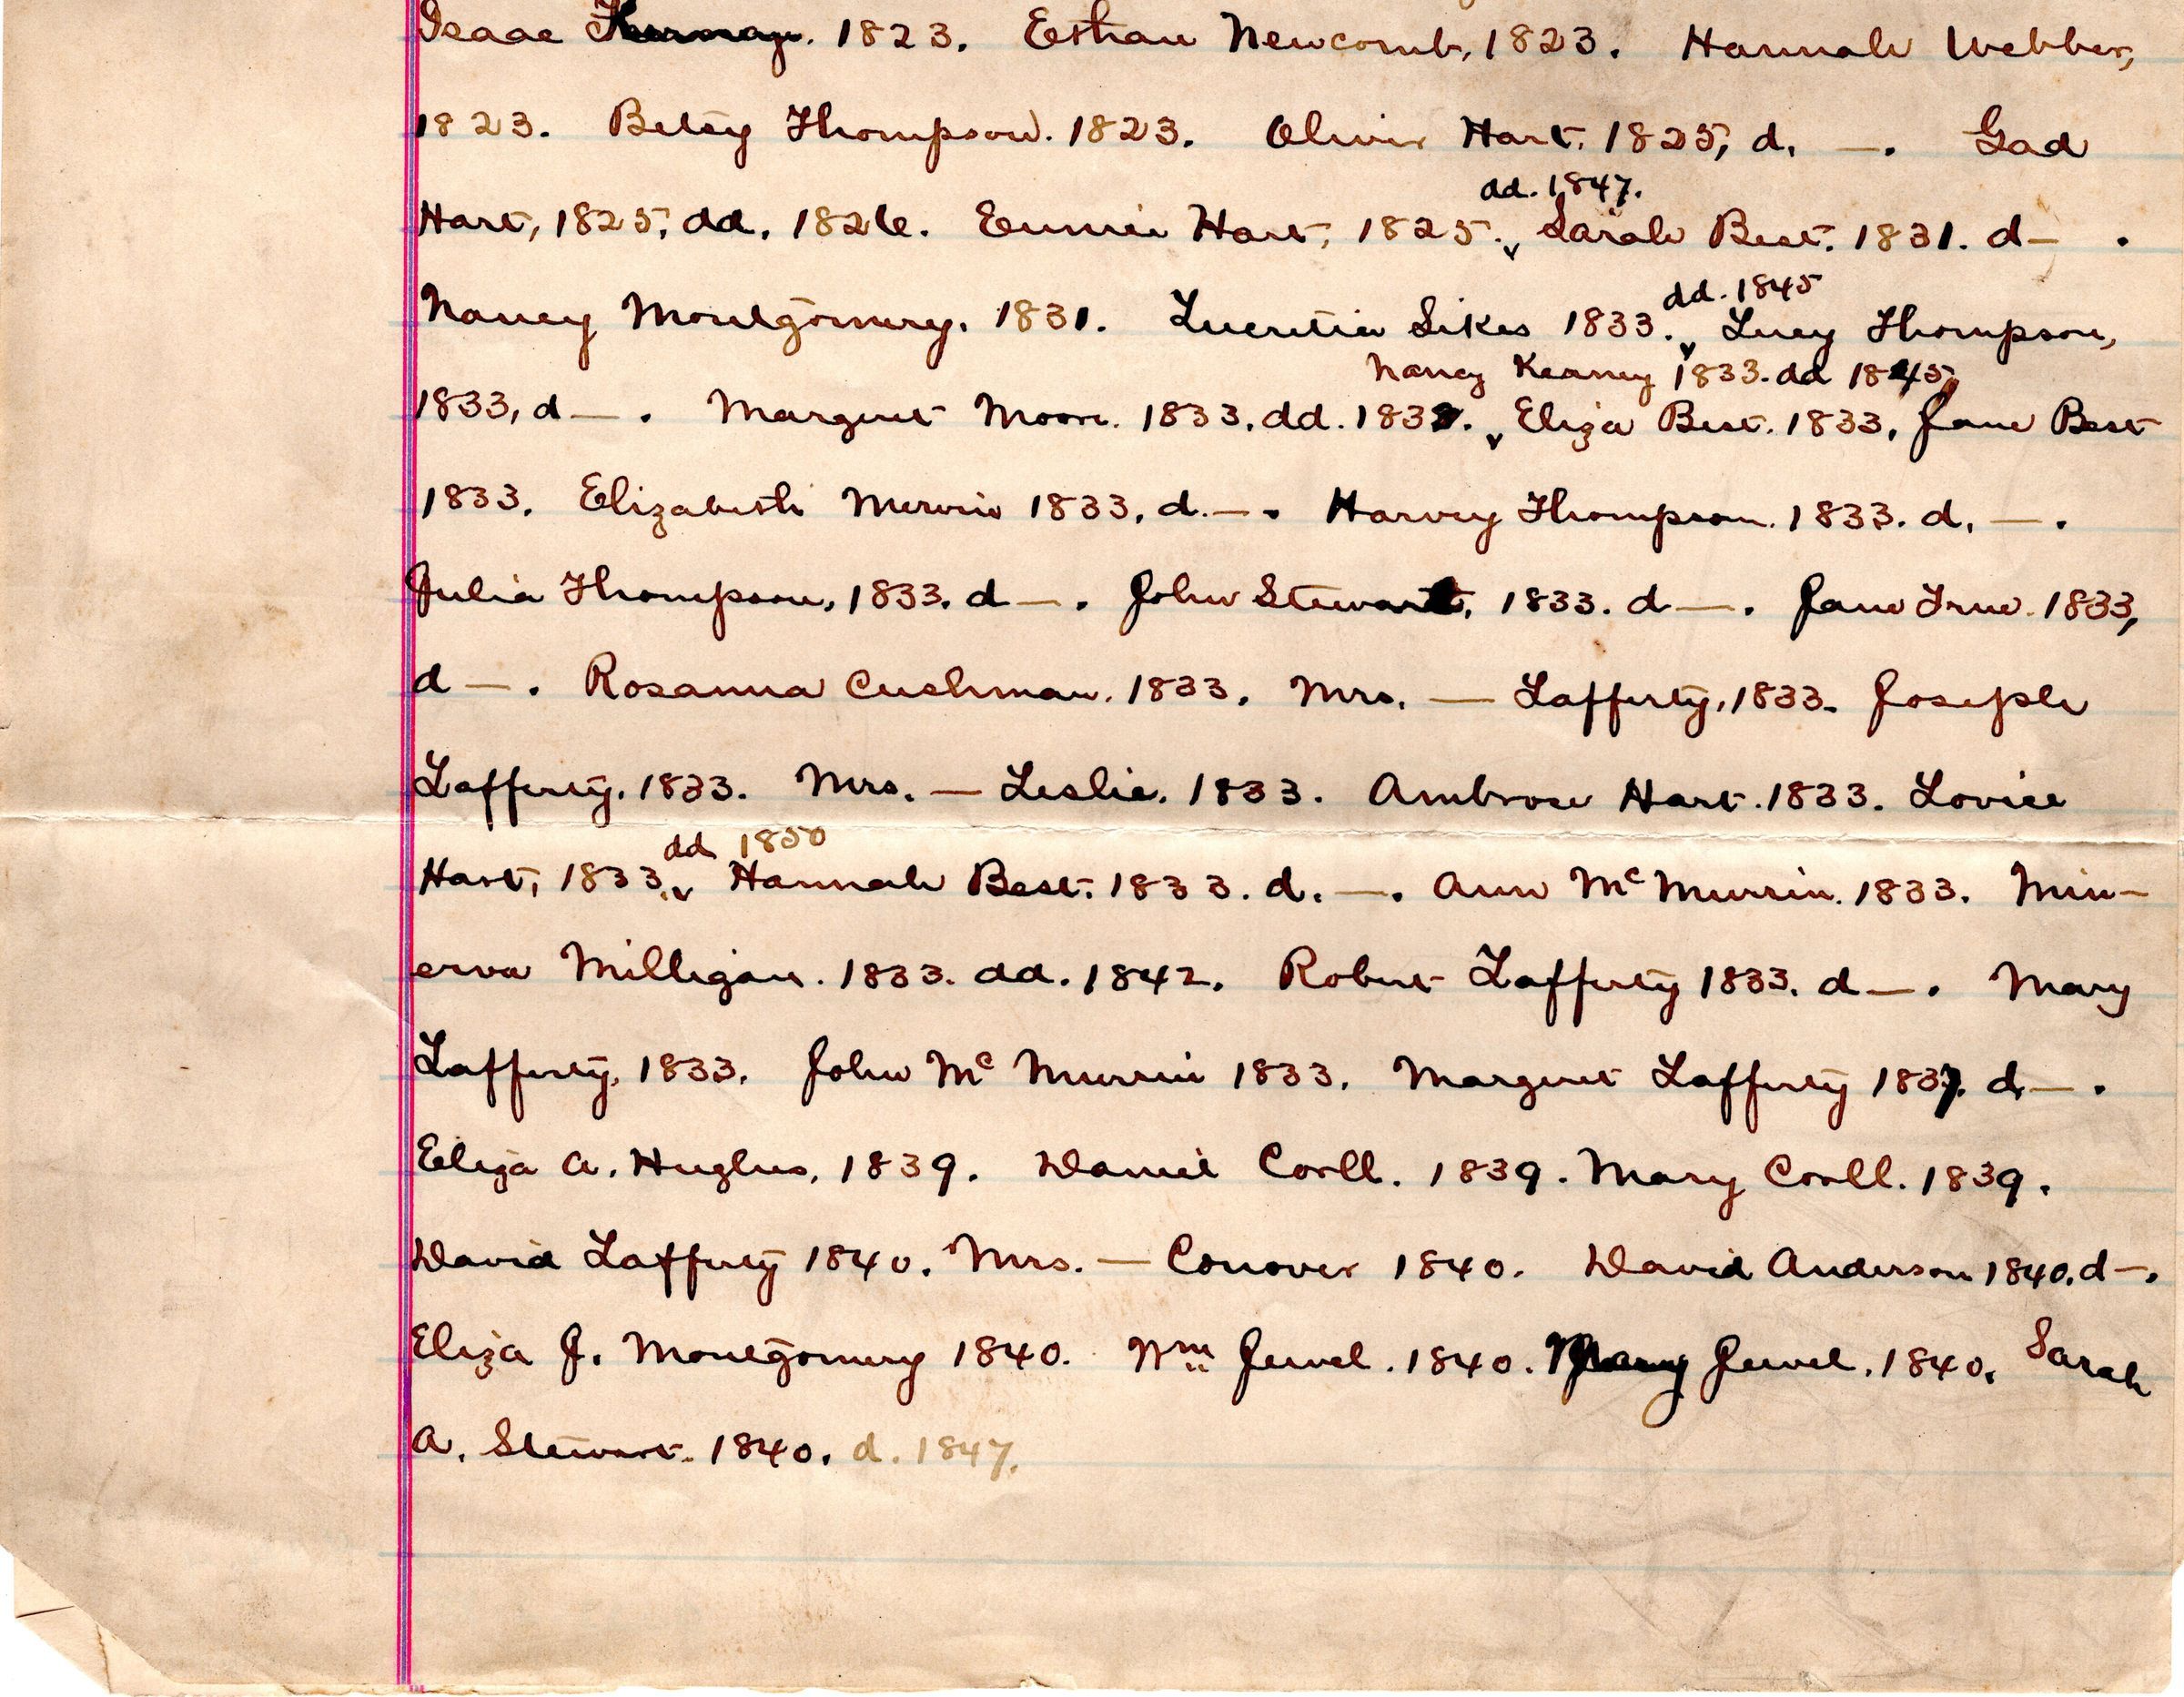 Isaac 1823. Esthau Newcomb, 1823. Hannah Webber,
1823. Betsy Thompson. 1823. Oliver Hart. 1825, d. —. Gad
dd. 1847.
Hart, 1825, dd. 1826. Eunice Hart, 1825. Sarah Best. 1831. d— .
dd. 1845
Nancy Montgomery. 1831. Lucretia Sikes 1833. Lucy Thompson,
Nancy Kearney 1833. dd 1845,
1833, d— . Margaret Moore. 1833. dd. 1838. Eliza Best. 1833. Jane Best
1833. Elizabeth Merwin 1833, d.—. Harvey Thompson. 1833. d. —.
Julia Thompson, 1833. d—. John Stewart, 1833. d—. Jane True. 1833,
d—. Rosanna Cushman. 1833. Mrs. — Lafferty, 1833. Joseph
Lafferty. 1833. Mrs. — Leslie. 1833. Ambrose Hart. 1833. Lovice
dd 1850
Hart, 1833. Hannah Best. 1833. d. —. Ann McMurrin. 1833. Min-
erva Milligan. 1833. dd. 1842. Robert Lafferty 1833. d—. Mary
Lafferty. 1833. John McMurrin 1833. Margaret Lafferty 1837. d—.
Eliza A. Hughes, 1839. Daniel Corll. 1839. Mary Corll. 1839.
David Lafferty 1840. Mrs. — Conover 1840. David Anderson 1840. d—.
Eliza J. Montgomery 1840. Wm Jewel. 1840. Mary Jewel. 1840. Sarah
A. Stewart. 1840. d. 1847.